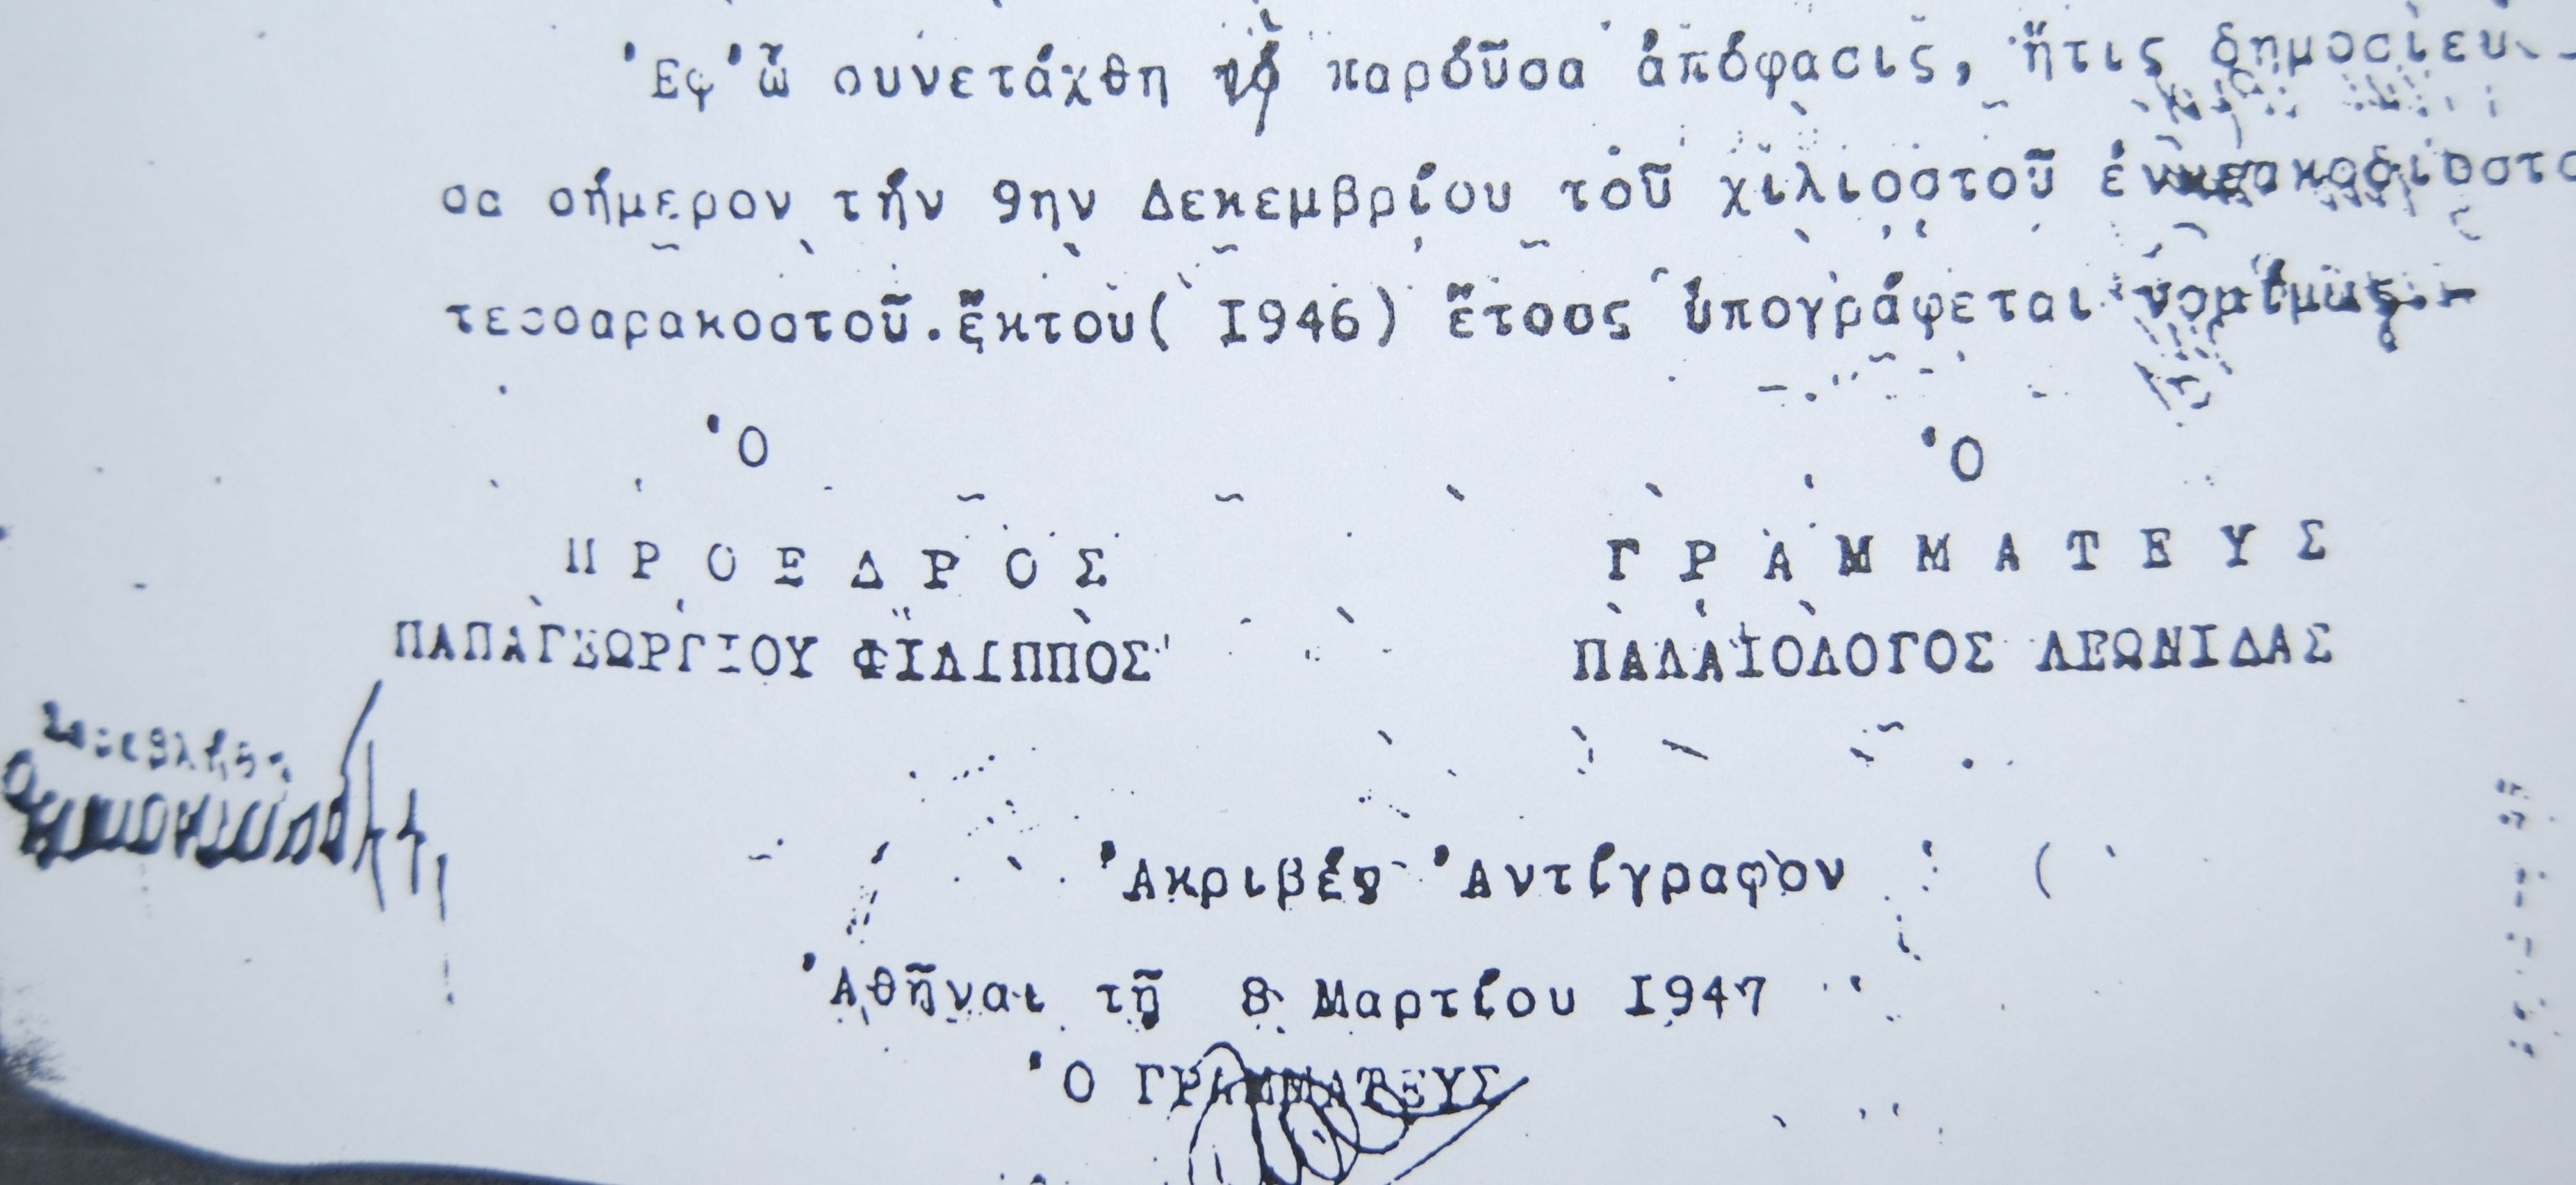 Ἐφ'ᾧ συνετάχθη ἡ παρόῦσα ἀπόφασις, ἥτις δημοσιευ
σα σήμερον τήν 9ην Δεκεμβρίου τοῦ χιλιοστοῦ ἐννεακοσιοστο
τεσσαρακοστοῦ.ἕκτου( 1946) ἔτοος ὑπογράφεται νομίμως.-
Ὁ Ὁ
Π Ρ Ο Ε Δ Ρ Ο Σ Γ Ρ Α Μ Μ Α Τ Ε Υ Σ
ΠΑΠΑΓΕΩΡΓΙΟΥ ΦΙΛΙΠΠΟΣ ΠΑΛΑΙΟΛΟΓΟΣ ΛΕΩΝΙΔΑΣ
Ἀκριβές Ἀντίγραφον
Ἀθῆναι τῇ 8 Μαρτίου 1947
Ὁ ΓΡΑΜΜΑΤΕΥΣ